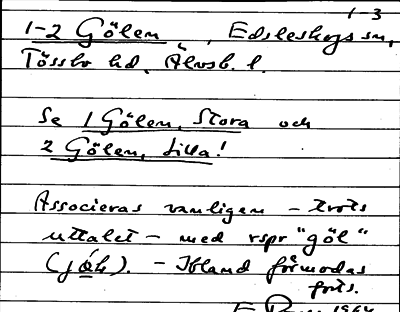 1-3
1-2 Gölen, Edsleskogs sn,
Tössbo hd, Älvsb. l.
Se 1 Gölen, Stora och
2 Gölen, Lilla!
Associeras vanligen – trots
uttalet – med rspr "göl"
(jǿḷ). – Ibland förmodas
forts.
1964